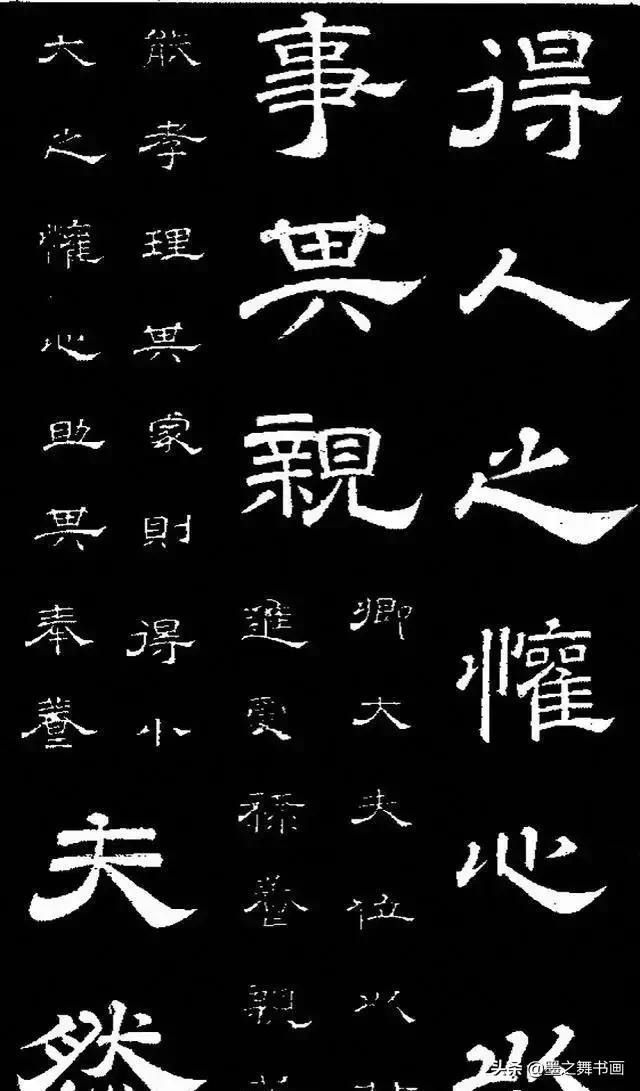 得人之懽心以
事其親
卿大夫位以
進受祿養親
能孝理其家則得小
大之懽心助其奉養
夫然
头条 @墨之舞书画